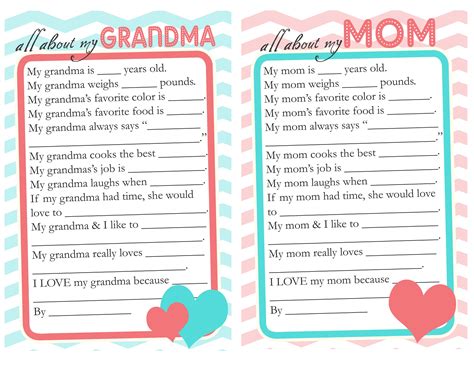 all about my GRANDMA
My grandma is ____ years old.
My grandma weighs ____ pounds.
My grandma's favorite color is ______.
My grandma's favorite food is ______.
My grandma always says "______
____________________."
My grandma cooks the best ______.
My grandmas's job is __________.
My grandma laughs when ________.
If my grandma had time, she would
love to ____________________.
My grandma & I like to __________
____________________.
My grandma really loves ________
____________________.
I LOVE my grandma because _____
____________________.
By __________
all about my MOM
My mom is ____ years old.
My mom weighs ____ pounds.
My mom's favorite color is ______.
My mom's favorite food is ______.
My mom always says "________
____________________."
My mom cooks the best ________.
My mom's job is ____________.
My mom laughs when __________.
If my mom had time, she would
love to ____________________.
My mom & I like to ____________
____________________.
My mom really loves __________
____________________.
I LOVE my mom because _______
____________________.
By __________